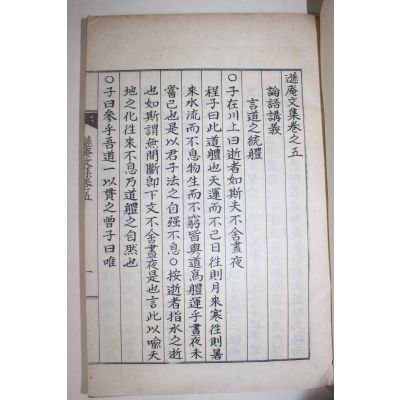 遯庵文集卷之五
論語講義
言道之統體
○子在川上曰逝者如斯夫不舍晝夜
程子曰此道體也天運而不已日往則月來寒往則暑
來水流而不息物生而不窮皆與道爲體運乎晝夜未
嘗已也是以君子法之自强不息○按逝者指水之逝
也如斯謂無間斷卽下文不舍晝夜是也言此以喩天
地之化往來不息乃道體之自然也
○子曰參乎吾道一以貫之曾子曰唯
遯庵文集卷五
一